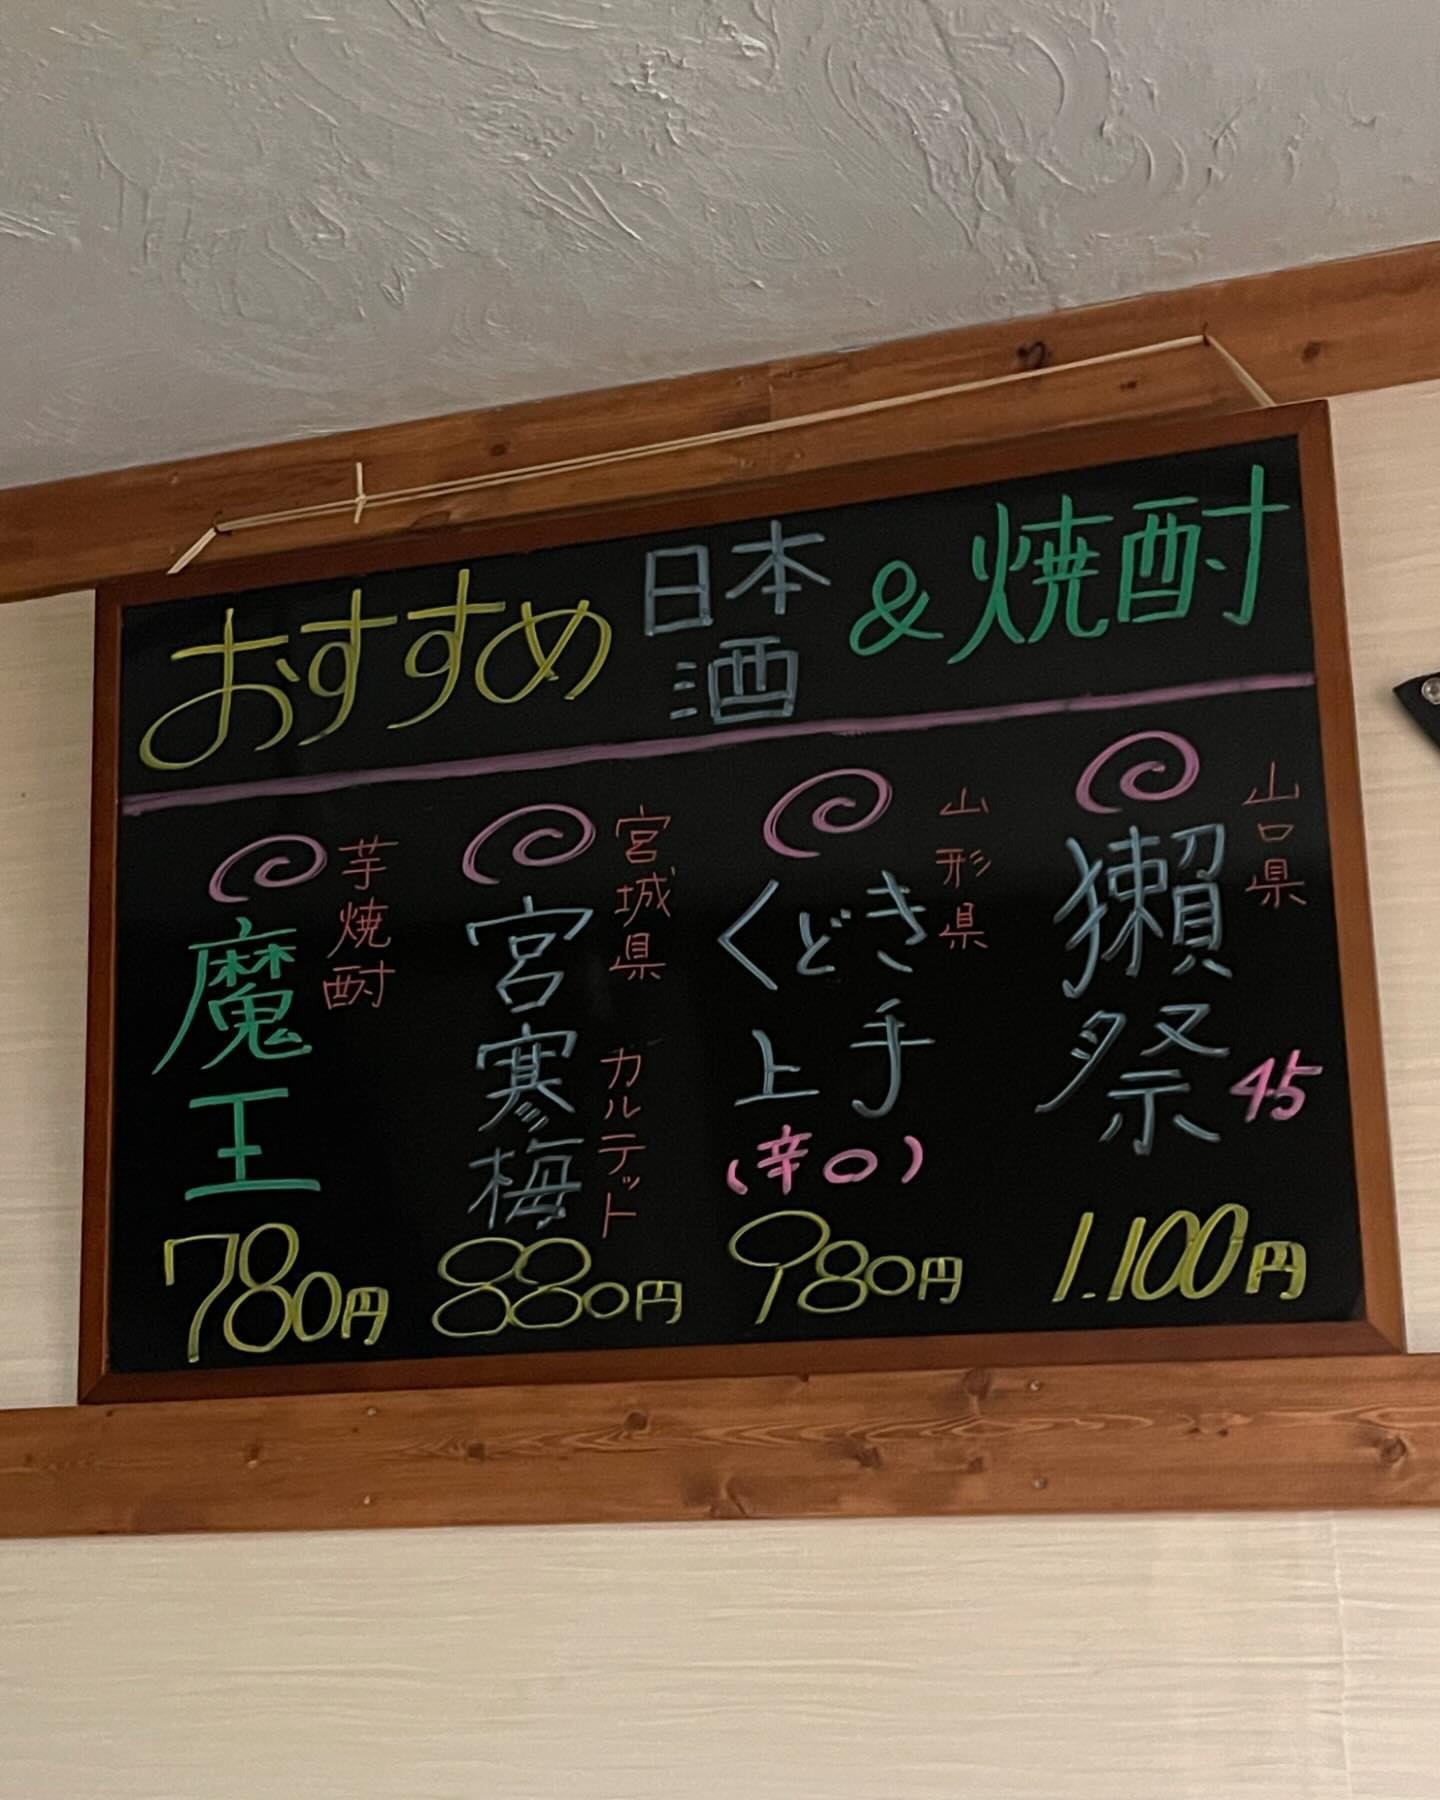 おすすめ 日本酒 & 焼酎
山口県
獺祭 45
1.100円
山形県
くどき上手
(辛口)
980円
宮城県 カルテット
宮寒梅
880円
芋焼酎
魔王
780円